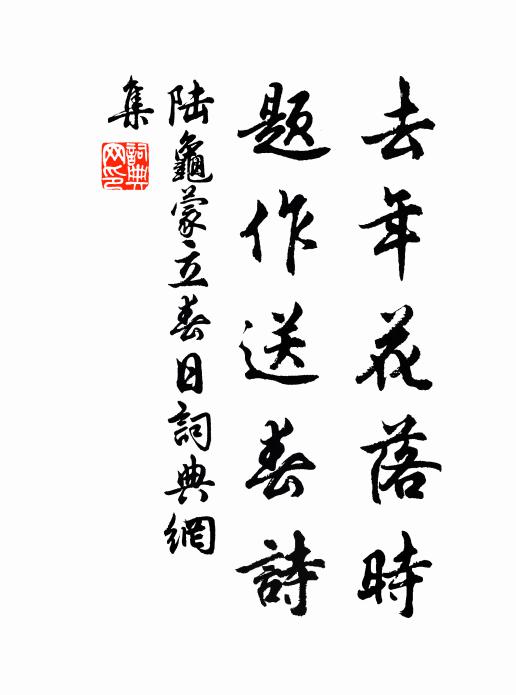 去年花落時
題作送春詩
陸龜蒙立春日詞典網
集
詞典
网印